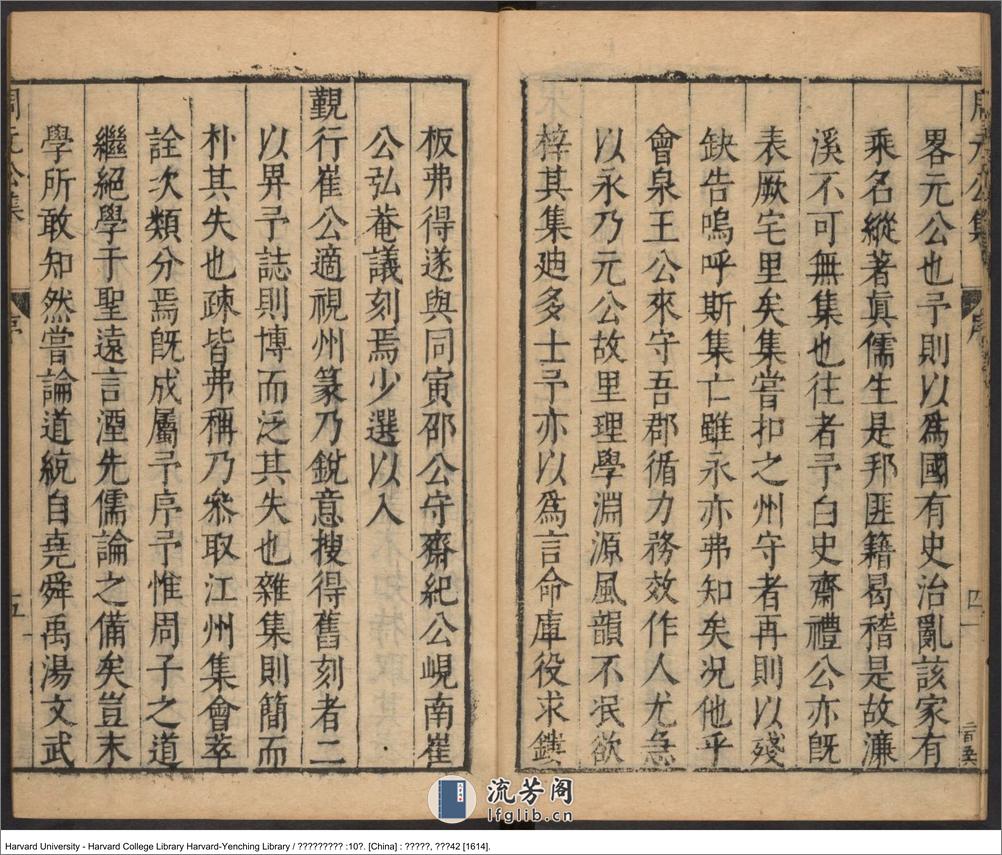 周元公集
序
四
二百五
畧元公也予則以為國有史治亂該家有
乘名縱著眞儒生是邦匪籍曷稽是故濂
溪不可無集也往者予白史齋禮公亦旣
表厥宅里矣集嘗扣之州守者再則以殘
缺告嗚呼斯集亡雖永亦弗知矣况他乎
會泉王公來守吾郡循力務效作人尤急
以永乃元公故里理學淵源風韻不泯欲
梓其集廸多士予亦以為言命庫役求鐫
板弗得遂與同寅邵公守齋紀公峴南崔
公弘菴議刻焉少選以入
覲行崔公適視州篆乃銳意搜得舊刻者二
以畀予誌則博而泛其失也雜集則簡而
朴其失也疎皆弗稱乃叅取江州集會萃
詮次類分焉旣成屬予序予惟周子之道
繼絕學于聖遠言湮先儒論之備矣豈末
學所敢知然嘗論道統自堯舜禹湯文武
周元公集
序
五
流芳阁
lfglib.cn
Harvard University - Harvard College Library Harvard-Yenching Library / ????????? :10?. [China] : ?????, ???42 [1614].